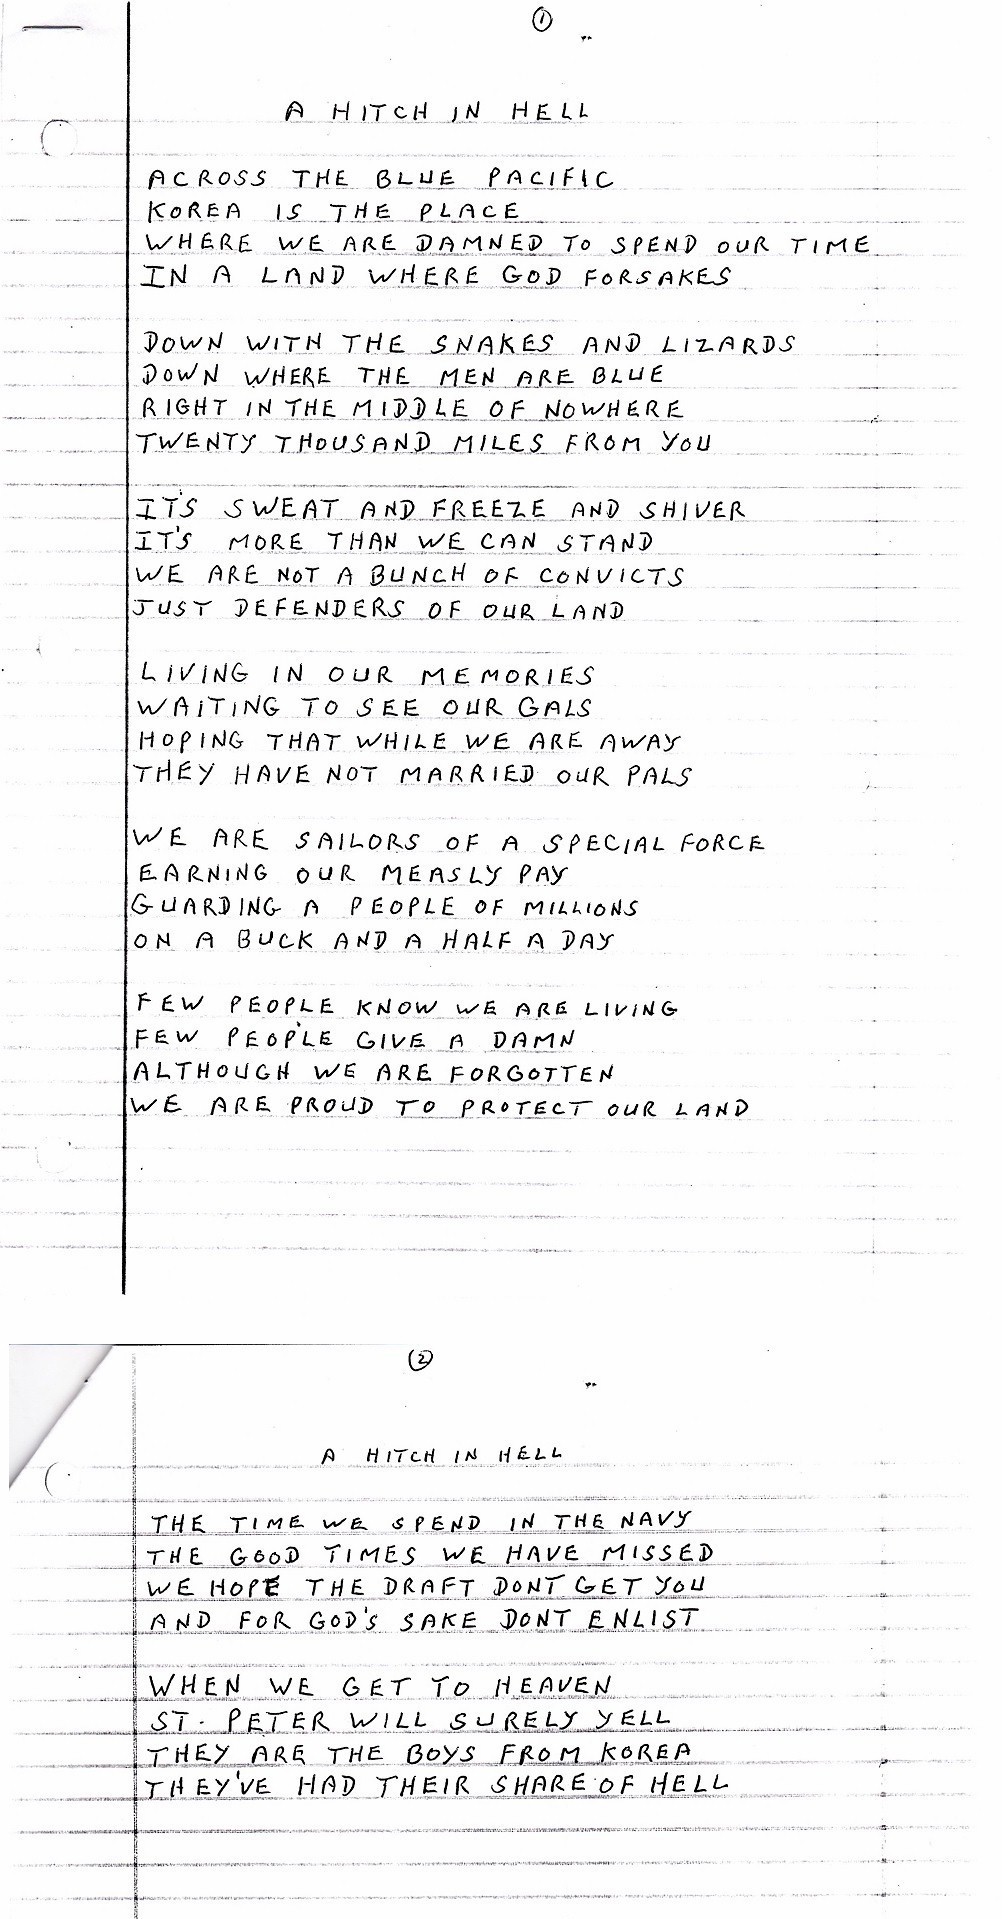 ①
A HITCH IN HELL
ACROSS THE BLUE PACIFIC
KOREA IS THE PLACE
WHERE WE ARE DAMNED TO SPEND OUR TIME
IN A LAND WHERE GOD FORSAKES
DOWN WITH THE SNAKES AND LIZARDS
DOWN WHERE THE MEN ARE BLUE
RIGHT IN THE MIDDLE OF NOWHERE
TWENTY THOUSAND MILES FROM YOU
IT'S SWEAT AND FREEZE AND SHIVER
IT'S MORE THAN WE CAN STAND
WE ARE NOT A BUNCH OF CONVICTS
JUST DEFENDERS OF OUR LAND
LIVING IN OUR MEMORIES
WAITING TO SEE OUR GALS
HOPING THAT WHILE WE ARE AWAY
THEY HAVE NOT MARRIED OUR PALS
WE ARE SAILORS OF A SPECIAL FORCE
EARNING OUR MEASLY PAY
GUARDING A PEOPLE OF MILLIONS
ON A BUCK AND A HALF A DAY
FEW PEOPLE KNOW WE ARE LIVING
FEW PEOPLE GIVE A DAMN
ALTHOUGH WE ARE FORGOTTEN
WE ARE PROUD TO PROTECT OUR LAND
②
A HITCH IN HELL
THE TIME WE SPEND IN THE NAVY
THE GOOD TIMES WE HAVE MISSED
WE HOPE THE DRAFT DONT GET YOU
AND FOR GOD'S SAKE DONT ENLIST
WHEN WE GET TO HEAVEN
ST. PETER WILL SURELY YELL
THEY ARE THE BOYS FROM KOREA
THEY'VE HAD THEIR SHARE OF HELL